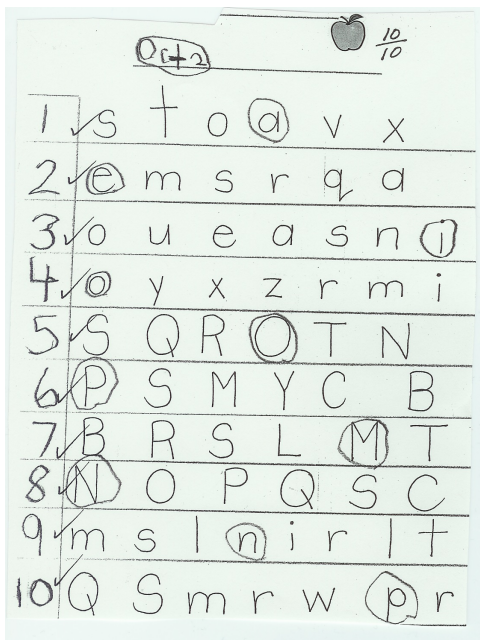 10/10
Oct 2
1 s t o a v x
2 e m s r q a
3 o u e a s n i
4 o y x z r m i
5 S Q R O T N
6 P S M Y C B
7 B R S L M T
8 N O P Q S C
9 m s l n i r l t
10 Q S m r w p r